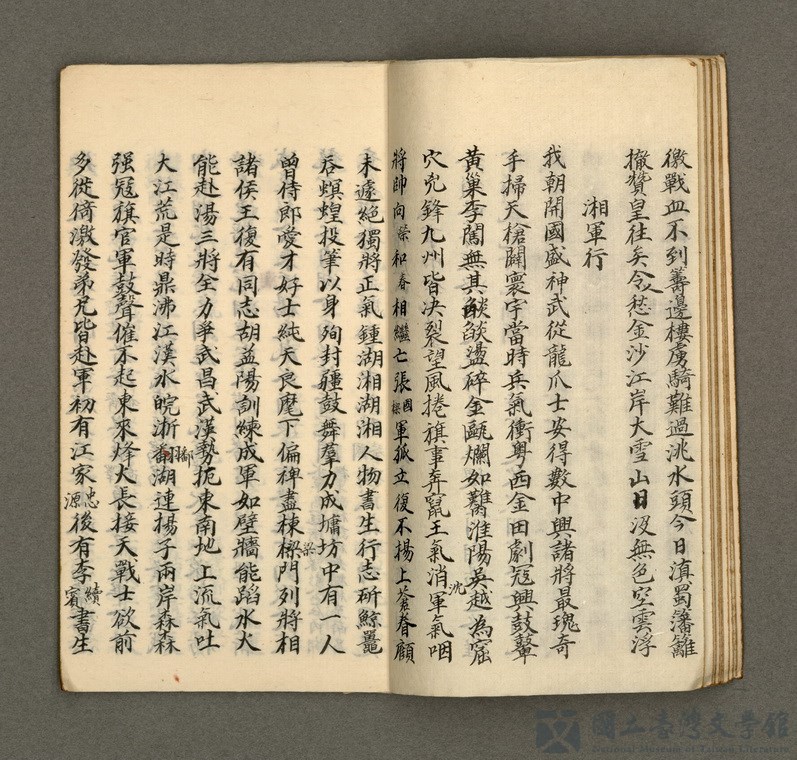 徼戰血不到籌邊樓虜騎難過洮水頭今日滇蜀藩籬
撤贊皇往矣令人愁金沙江岸大雪山日沒無色空雲浮
湘軍行
我朝開國盛神武從龍爪士安得數中興諸將最瑰奇
手掃天槍闢寰宇當時兵氣衝粵西金田劇寇興鼓鼙
黃巢李闖無其燄燄盪碎金甌爛如虀淮陽吳越為窟
穴兜鋒九州皆決裂望風捲旗事奔竄王氣消沈軍氣咽
將帥向榮和春相繼亡張國樑軍孤立復不揚上蒼眷顧
未遽絕獨將正氣鍾湖湘湖湘人物書生行志斫鯨鼉
吞螟蝗投筆以身殉封疆鼓舞羣力成墉坊中有一人
曾侍郎愛才好士純天良麾下偏裨盡棟樑梁門列將相
諸侯王復有同志胡益陽訓練成軍如壁牆能蹈水火
能赴湯三將全力爭武昌武漢勢扼東南地上流氣吐
大江荒是時鼎沸江漢水皖浙鄱湖連揚子兩岸森森
强寇旗官軍鼓聲催不起東來烽火長接天戰士欲前
多徙倚激發弟兄皆赴軍初有江家忠源後有李續賓書生
國立臺灣文學館
National Museum of Taiwan Literature